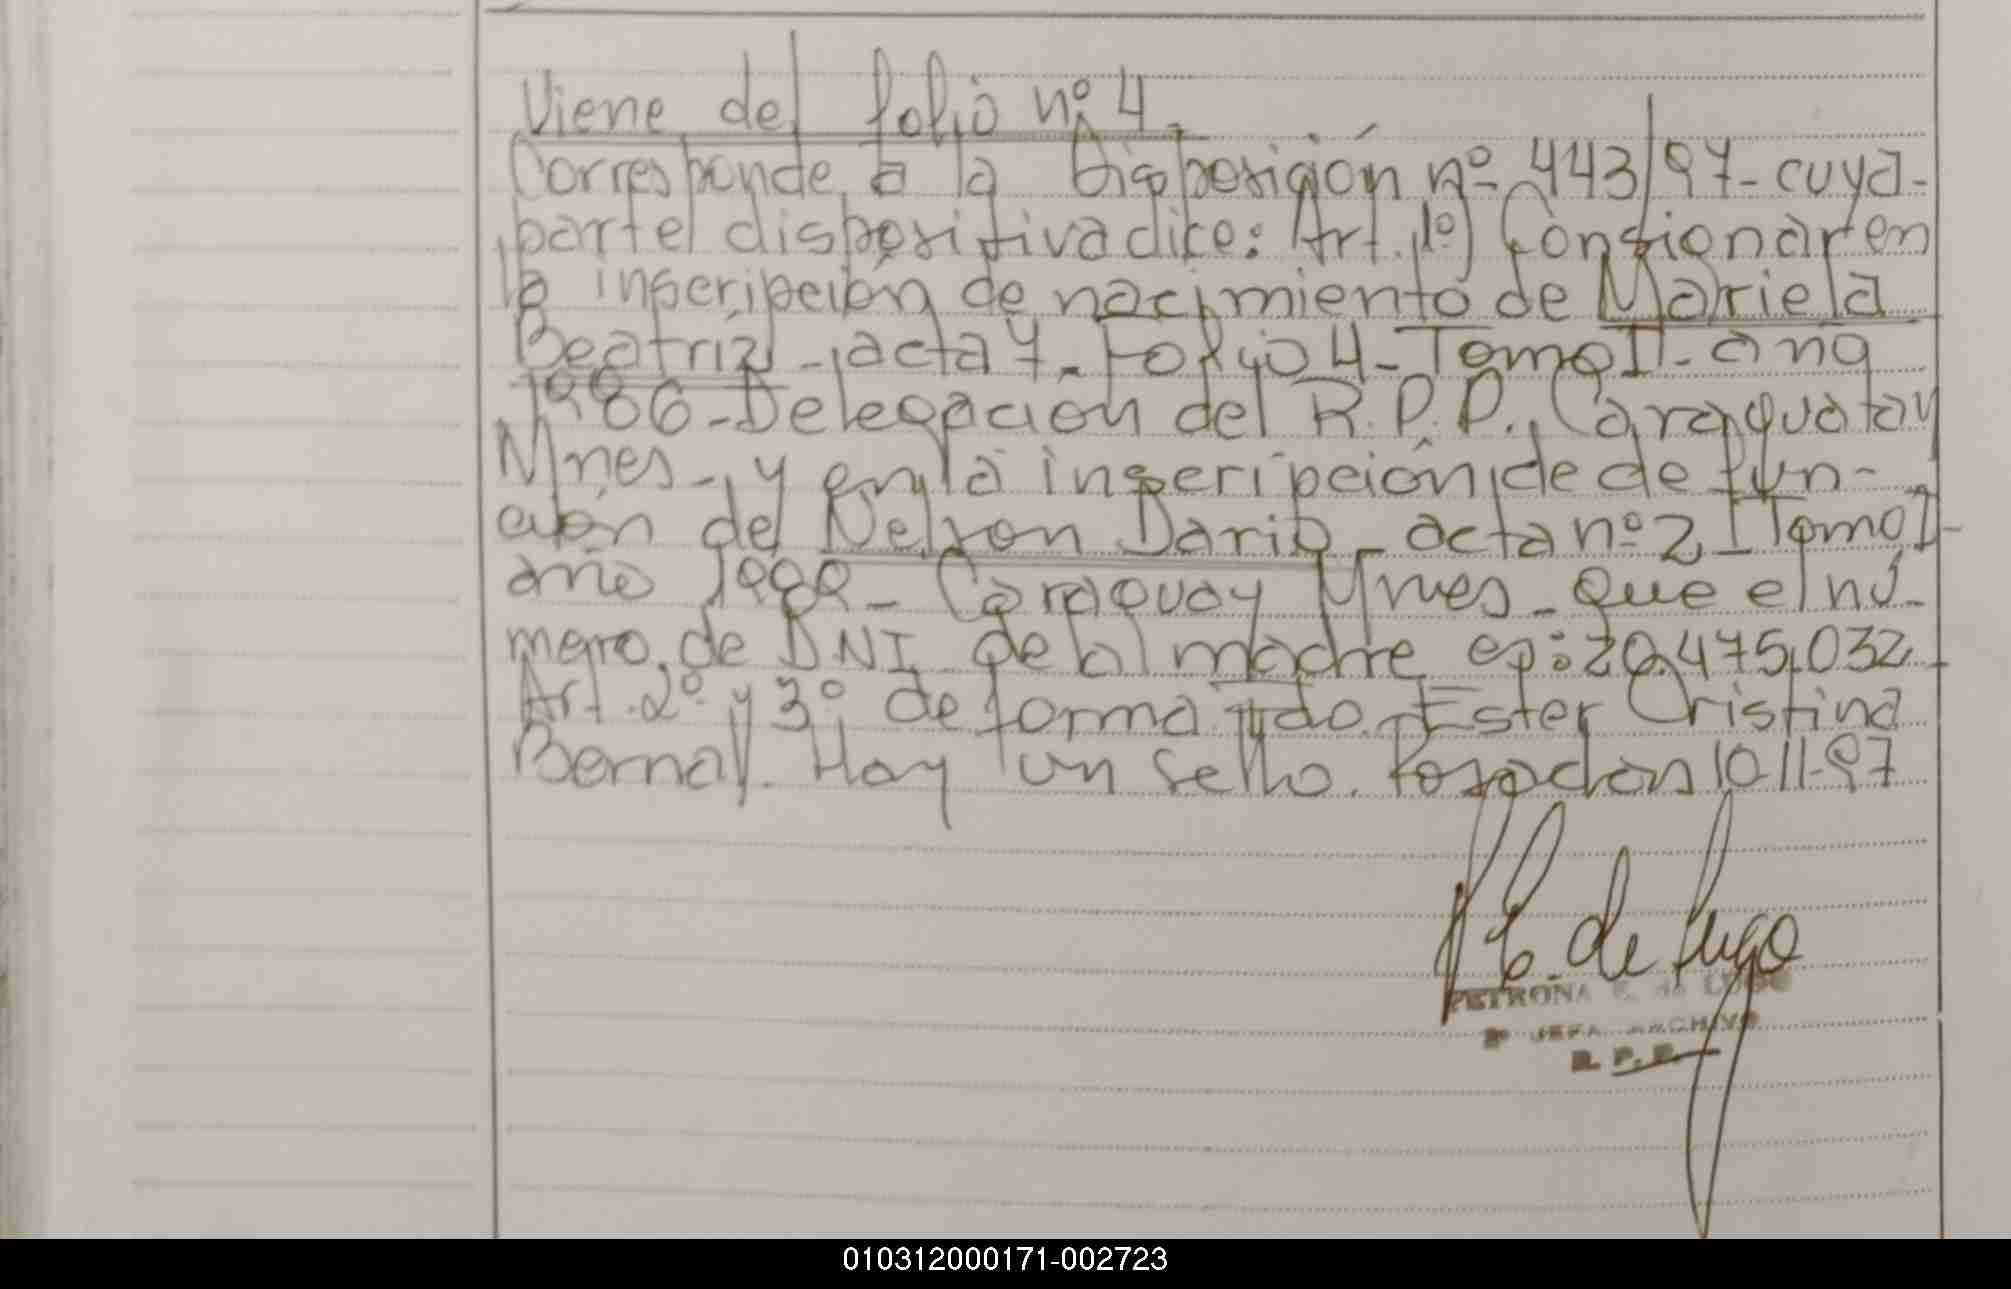 Viene del folio nº 4.
Corresponde a la Disposición nº 443/97- cuya-
parte dispositiva dice: Art. 1º) Consionar en
la inscripción de nacimiento de Mariela
Beatríz - acta 4. Folio 4 - Tomo II - año
1986 - Delegación del R.P.P., Caraguatay
Mnes -, y en la inscripción de defun-
ción de Nelson Dario - acta nº 2, Tomo I -
año 1988 - Caraguay Mnes - que el nú-
mero de DNI de al madre es: 20.475.032
Art. 2º y 3º de forma fdo. Ester Cristina
Bernal. Hay un sello. Posadas 10-11-97
P E. de Lugo
PETRONA E. de LUGO
JEFA ARCHIVO
R. P. P.
010312000171-002723